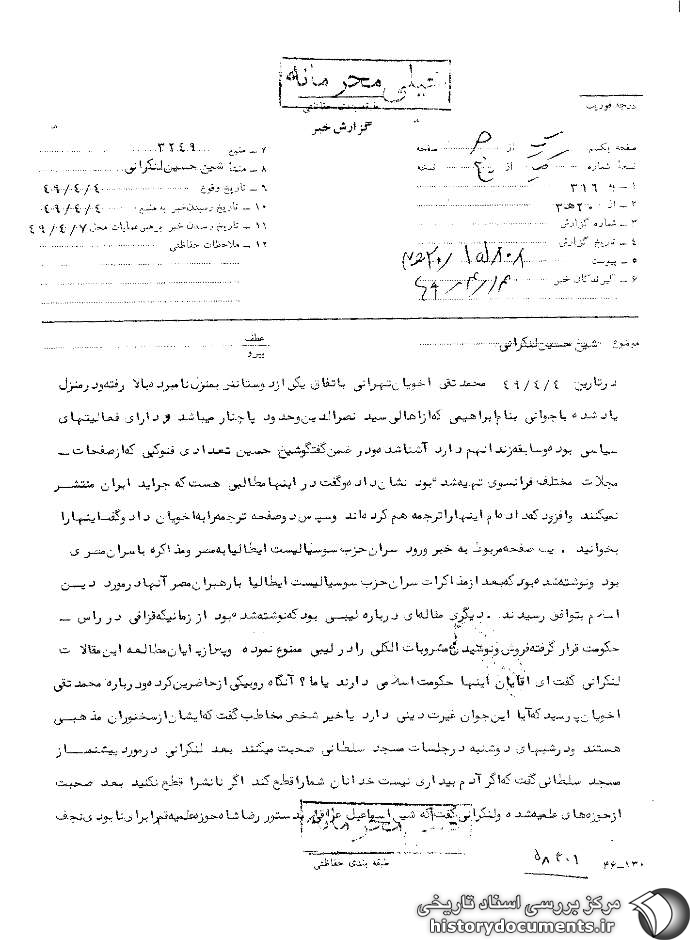 خیلی محرمانه
طبقه بندی حفاظتی
گزارش خبر
درجه فوریت
صفحه یکم از صفحه
نسخه شماره از نسخه
۱ – به ۳۱۶
۲ – از ۲۰ ه‍ ۳
۳ – شماره گزارش
۴ – تاریخ گزارش
۵ – پیوست
۶ – گیرندگان خبر
۷ – منبع ۳۲۴۹
۸ – منشأ شیخ حسین لنکرانی
۹ – تاریخ وقوع ۴۹/۴/۴
۱۰ – تاریخ رسیدن خبر به منبع ۴۹/۴/۴
۱۱ – تاریخ رسیدن خبر برهبر عملیات محل ۴۹/۴/۷
۱۲ – ملاحظات حفاظتی
موضوع شیخ حسین لنکرانی
عطف
پیرو
در تاریخ ۴۹/۴/۴ محمد تقی اخویان تهرانی باتفاق یکی از دوستانش بمنزل نامبرده بالا رفته و در منزل
یاد شده با جوانی بنام ابراهیمی که از اهالی سید نصرالدین و حدود پاچنار میباشد و دارای فعالیتهای
سیاسی بوده و سابقه زندانهم دارد آشنا شده و در ضمن گفتگو شیخ حسین تعدادی فتوکپی که از صفحات –
مجلات مختلف فرانسوی تهیه شده بود نشان داده و گفت در اینها مطالبی هست که جراید ایران منتشر
نمیکنند و افزود که داده ام اینها را ترجمه هم کرده اند و سپس دو صفحه ترجمه را به اخویان داد و گفت اینها را
بخوانید . یک صفحه مربوط به خبر ورود سران حزب سوسیالیست ایطالیا به مصر و مذاکره با سران مصری
بود و نوشته شده بود که بعد از مذاکرات سران حزب سوسیالیست ایطالیا با رهبران مصر آنها در مورد دین
اسلام بتوافق رسیدند . دیگری مقاله ای درباره لیبی بود که نوشته شده بود از زمانیکه قزافی در راس –
حکومت قرار گرفته فروش و نوشیدن مشروبات الکلی را در لیبی ممنوع نموده و پس از پایان مطالعه این مقالات
لنکرانی گفت ای آقایان اینها حکومت اسلامی دارند یا ما؟ آنگاه رو بیکی از حاضرین کرده و درباره محمد تقی
اخویان پرسید که آیا این جوان غیرت دینی دارد یا خیر شخص مخاطب گفت که ایشان از سخنوران مذهبی
هستند و در شبهای دوشنبه در جلسات مسجد سلطانی صحبت میکنند بعد لنکرانی در مورد پیشنماز
مسجد سلطانی گفت که اگر آدم بیداری نیست خدا نان شما را قطع کند اگر نانش را قطع نکنید بعد صحبت
از حوزه های علمیه شده و لنکرانی گفت که شیخ اسماعیل بدستور رضا شاه حوزه علمیه قم را برای نابودی نجف
طبقه بندی حفاظتی
۴۶–۱۳۰
مرکز بررسی اسناد تاریخی
historydocuments.ir